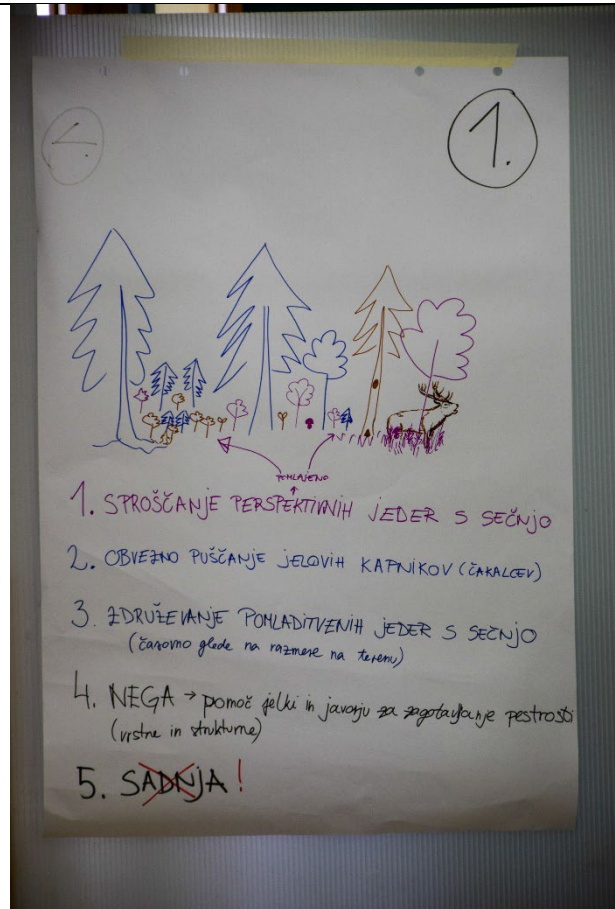 1.
POMLAJENO
1. SPROŠČANJE PERSPEKTIVNIH JEDER S SEČNJO
2. OBVEZNO PUŠČANJE JELOVIH KAPNIKOV (ČAKALCEV)
3. ZDRUŽEVANJE POMLADITVENIH JEDER S SEČNJO
(časovno glede na razmere na terenu)
4. NEGA → pomoč jelki in javorju za zagotavljanje pestrosti
(vrstne in strukturne)
5. SADNJA!